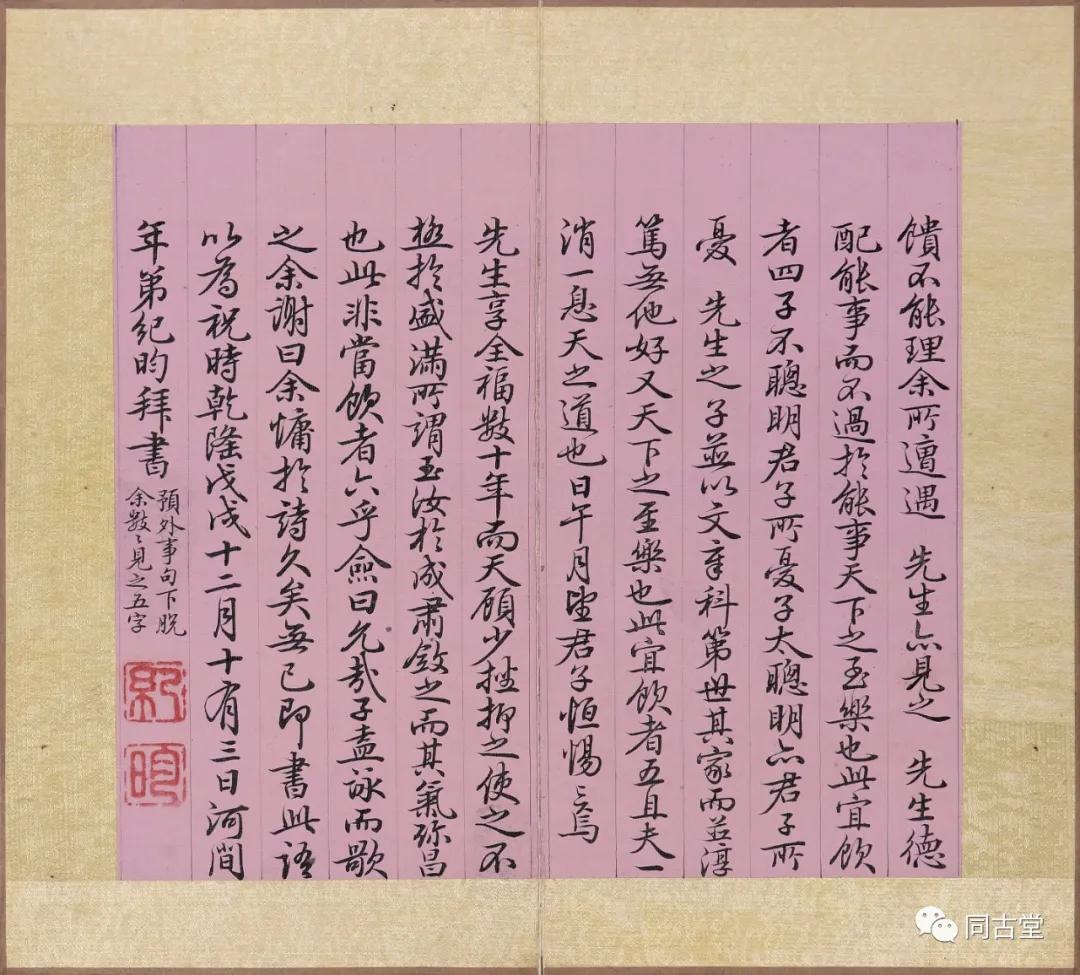 饋不能理余所遭遇　先生亦見之　先生德
配能事而不過於能事天下之至樂也此宜飲
者四子不聰明君子所憂子太聰明亦君子所
憂　先生之子並以文章科第世其家而並淳
篤無他好又天下之至樂也此宜飲者五且夫一
消一息天之道也日午月望君子恒惕〻焉
先生享全福數十年而天顧少挫抑之使之不
極於盛滿所謂玉汝於成肅斂之而其氣弥昌
也此非當飲者六乎僉曰允哉子盍詠而歌
之余謝曰余慵於詩久矣無已即書此語
以為祝時乾隆戊戌十二月十有三日河間
年第紀昀拜書
預外事句下脫
余數〻見之五字
紀
昀
同古堂